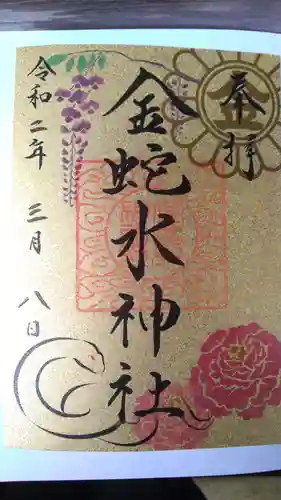 奉拝
金蛇水神社
令和二年三月八日